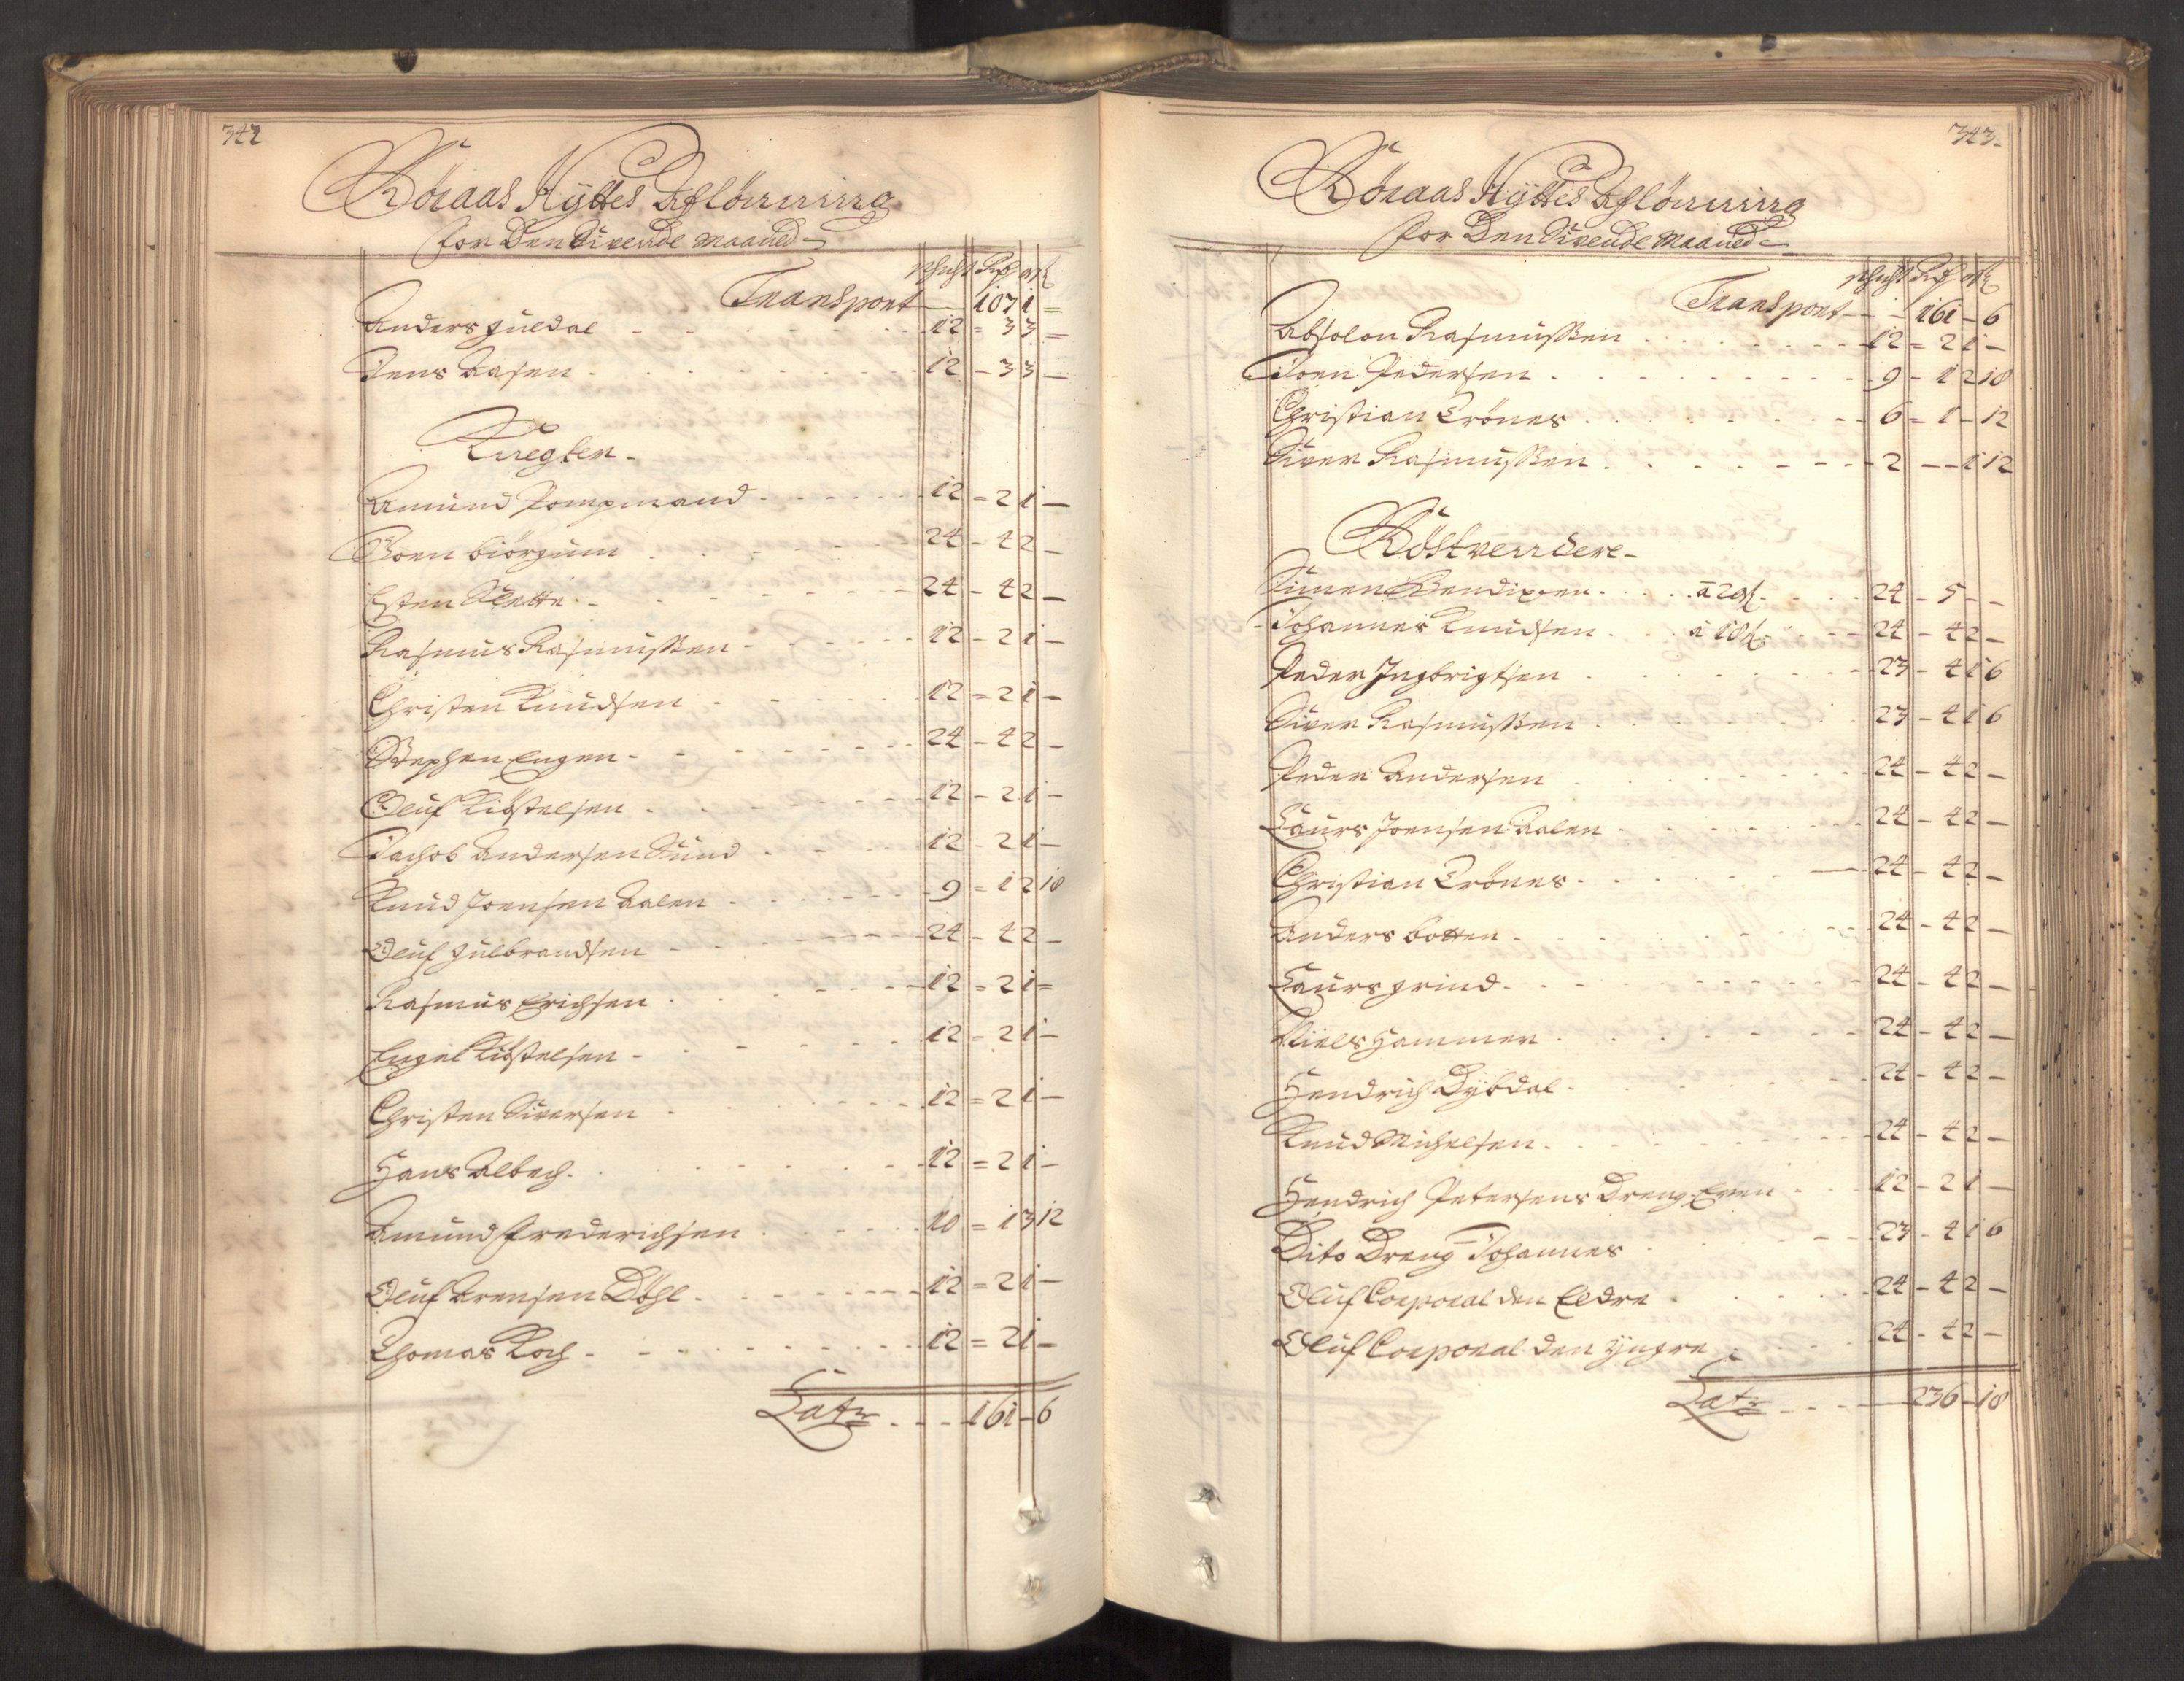 342
Röraas Hyttes Aflönning
for Den Siuende Maaned
Schicht Rdr ort ß
Transport — 107 1 =
Anders Guldal - - - 12 = 3 3 =
Jens Aasen - - - 12 - 3 3 -
Knegter-
Amund Tompmand - - - 12 = 2 1 -
Joen biörgum - - - 24 - 4 2 -
Esten Slette - - - 24 - 4 2 -
Rasmus Rasmussen - - - 12 - 2 1 -
Christen Knudsen - - - 12 = 2 1 -
Stephen Engen - - - 24 - 4 2 -
Oluf Kiöstelsen - - - 12 - 2 1 -
Jachob Andersen Sund - - - 12 - 2 1 -
Knud Joensen Aalen - - - 9 = 1 2 18
Oluf Gulbrandsen - - - 24 - 4 2 -
Rasmus Erichsen - - - 12 = 2 1 =
Engel Kiöstelsen - - - 12 = 2 1 -
Christen Siversen - - - 12 = 2 1 -
Hans Albech - - - 12 = 2 1 -
Amund Frederichsen - - - 10 = 1 3 12
Oluf Arensen Döhl - - - 12 = 2 1 -
Thomas Koch - - - 12 = 2 1 -
Latr - - - 161 - 6
343
Röraas Hyttes Aflönning
for Den Siuende Maaned
Schicht Rdr ort ß
Transport — 161 - 6
Absolon Rasmussen - - - 12 = 2 1 -
Joen Pedersen - - - 9 - 1 2 18
Christian Trönes - - - 6 = 1 - 12
Siver Rasmussen - - - 2 - - 1 12
Röstvendere-
Simen Bendixen . . . à 20 ß . . . 24 - 5 - -
Johannes Knudsen . . à 18 ß . . 24 - 4 2 -
Peder Ingbrigtsen - - - 23 - 4 1 6
Siver Rasmussen - - - 23 - 4 1 6
Peder Andersen - - - 24 - 4 2 -
Laurs Joensen Aalen - - - 24 - 4 2 -
Christian Trönes - - - 24 - 4 2 -
Anders botten - - - 24 - 4 2 -
Laurs grind - - - 24 - 4 2 -
Niels Hammer - - - 24 - 4 2 -
Hendrich Dybdal - - - 24 - 4 2 -
Knud Michelsen - - - 24 - 4 2 -
Hendrich Petersens Dreng Even - 12 - 2 1 -
Dito Dreng Johannes - - - 23 - 4 1 6
Oluf Corporal den Eldre - - - 24 - 4 2 -
Oluf Corporal den yngre - - - 24 - 4 2 -
Latr - - - 236 - 18